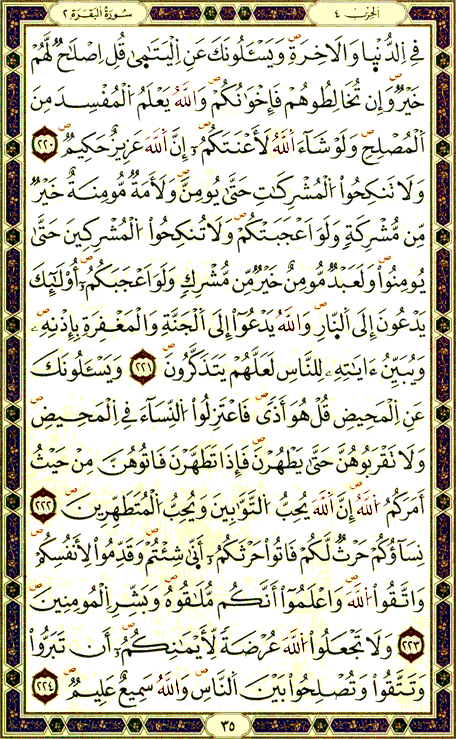 الحِزْب ٤
سُورَةُ البَقَرَة ٢
فِے اِ۬لدُّنْيَا وَالَاخِرَةِۖ وَيَسْـَٔلُونَكَ عَنِ اِ۬لْيَتَٰمَىٰۖ قُلِ اِصْلَٰحٞ لَّهُمْ
خَيْرٞۖ وَإِن تُخَالِطُوهُمْ فَإِخْوَٰنُكُمْۖ وَاللَّهُ يَعْلَمُ اُ۬لْمُفْسِدَ مِنَ
اَ۬لْمُصْلِحِۖ وَلَوْ شَآءَ اَ۬للَّهُ لَأَعْنَتَكُمُۥٓۖ إِنَّ اَ۬للَّهَ عَزِيزٌ حَكِيمٞۖ ٢٢٠
وَلَا تَنكِحُواْ اُ۬لْمُشْرِكَٰتِ حَتَّىٰ يُومِنَّۖ وَلَأَمَةٞ مُّومِنَةٌ خَيْرٞ
مِّن مُّشْرِكَةٖ وَلَوَ اَعْجَبَتْكُمْۖ وَلَا تُنكِحُواْ اُ۬لْمُشْرِكِينَ حَتَّىٰ
يُومِنُواْۖ وَلَعَبْدٞ مُّومِنٌ خَيْرٞ مِّن مُّشْرِكٖ وَلَوَ اَعْجَبَكُمُۥٓۖ أُوْلَٰٓئِكَ
يَدْعُونَ إِلَى اَ۬لنّ۪ارِۖ وَاللَّهُ يَدْعُوٓاْ إِلَى اَ۬لْجَنَّةِ وَالْمَغْفِرَةِ بِإِذْنِهِۦۖ
وَيُبَيِّنُ ءَايَٰتِهِۦ لِلنَّاسِ لَعَلَّهُمْ يَتَذَكَّرُونَۖ ٢٢١ وَيَسْـَٔلُونَكَ
عَنِ اِ۬لْمَحِيضِۖ قُلْ هُوَ أَذىٗۖ فَاعْتَزِلُواْ اُ۬لنِّسَآءَ فِے اِ۬لْمَحِيضِۖ
وَلَا تَقْرَبُوهُنَّ حَتَّىٰ يَطْهُرْنَۖ فَإِذَا تَطَهَّرْنَ فَاتُوهُنَّ مِنْ حَيْثُ
أَمَرَكُمُ اُ۬للَّهُۖ إِنَّ اَ۬للَّهَ يُحِبُّ اُ۬لتَّوَّٰبِينَ وَيُحِبُّ اُ۬لْمُتَطَهِّرِينَۖ ٢٢٢
نِسَآؤُكُمْ حَرْثٞ لَّكُمْ فَاتُواْ حَرْثَكُمُۥٓ أَنّ۪ىٰ شِئْتُمْۖ وَقَدِّمُواْ لِأَنفُسِكُمْۖ
وَاتَّقُواْ اُ۬للَّهَۖ وَاعْلَمُوٓاْ أَنَّكُم مُّلَٰقُوهُۖ وَبَشِّرِ اِ۬لْمُومِنِينَۖ
٢٢٣ وَلَا تَجْعَلُواْ اُ۬للَّهَ عُرْضَةٗ لِّأَيْمَٰنِكُمُۥٓۖ أَن تَبَرُّواْ
وَتَتَّقُواْ وَتُصْلِحُواْ بَيْنَ اَ۬لنَّاسِۖ وَاللَّهُ سَمِيعٌ عَلِيمٞۖ ٢٢٤
٣٥